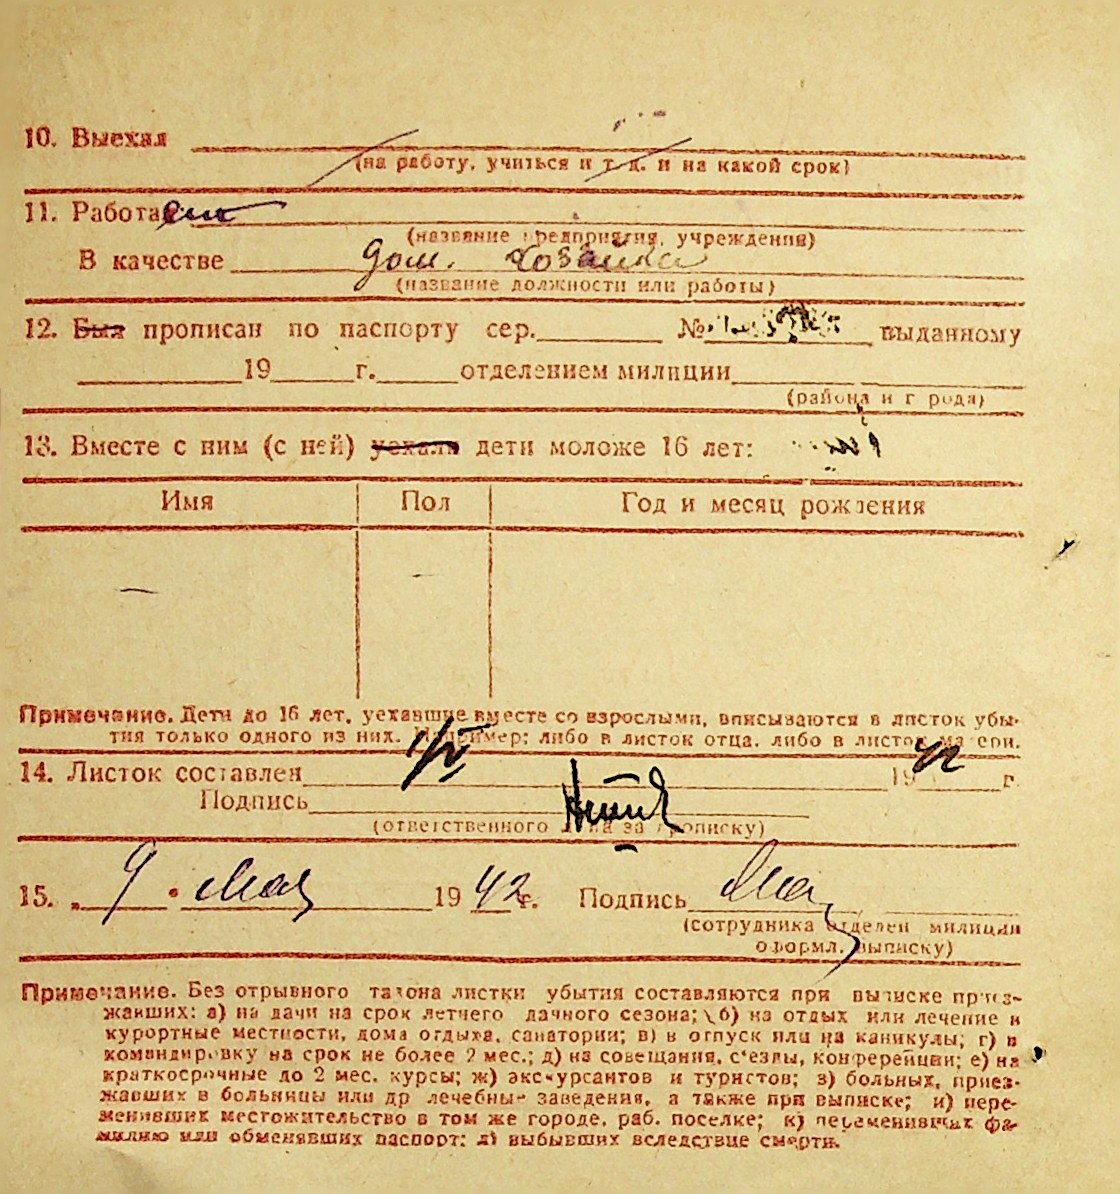 10. Выехал
(на работу, учиться и т. д. и на какой срок)
11. Работает
(название предприятия, учреждения)
В качестве дом. хозяйка
(название должности или работы)
12. Был прописан по паспорту сер. № выданному
19 г. отделением милиции
(района и города)
13. Вместе с ним (с ней) уехали дети моложе 16 лет:
Имя Пол Год и месяц рождения
— —
Примечание. Дети до 16 лет, уехавшие вместе со взрослыми, вписываются в листок убы-
тия только одного из них. Например: либо в листок отца, либо в листок матери.
14. Листок составлен 1942 г.
Подпись
(ответственного лица за прописку)
15. „ 9 " Мая 1942 г. Подпись
(сотрудника отделен милиции
оформл. выписку)
Примечание. Без отрывного талона листки убытия составляются при выписке приез-
жавших: а) на дачи на срок летнего дачного сезона; б) на отдых или лечение в
курортные местности, дома отдыха, санатории; в) в отпуск или на каникулы; г) в
командировку на срок не более 2 мес.; д) на совещания, с'езды, конференции; е) на
краткосрочные до 2 мес. курсы; ж) экскурсантов и туристов; з) больных, приез-
жавших в больницы или др лечебные заведения, а также при выписке; и) пере-
менивших местожительство в том же городе, раб. поселке; к) переменивших фа-
милию или обменявших паспорт; л) выбывших вследствие смерти.